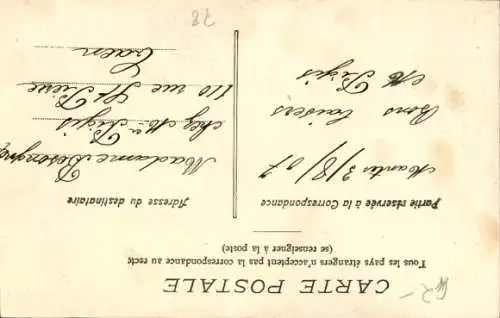 CARTE POSTALE
Tous les pays étrangers n'acceptent pas la correspondance au recto
(se renseigner à la poste)
Partie réservée à la Correspondance
Mantes 3/8/07
Bons baisers
M Brégis
Adresse du destinataire
Madame Besongne
chez Mme Brégis
110 rue St Pierre
Caen
42-
78